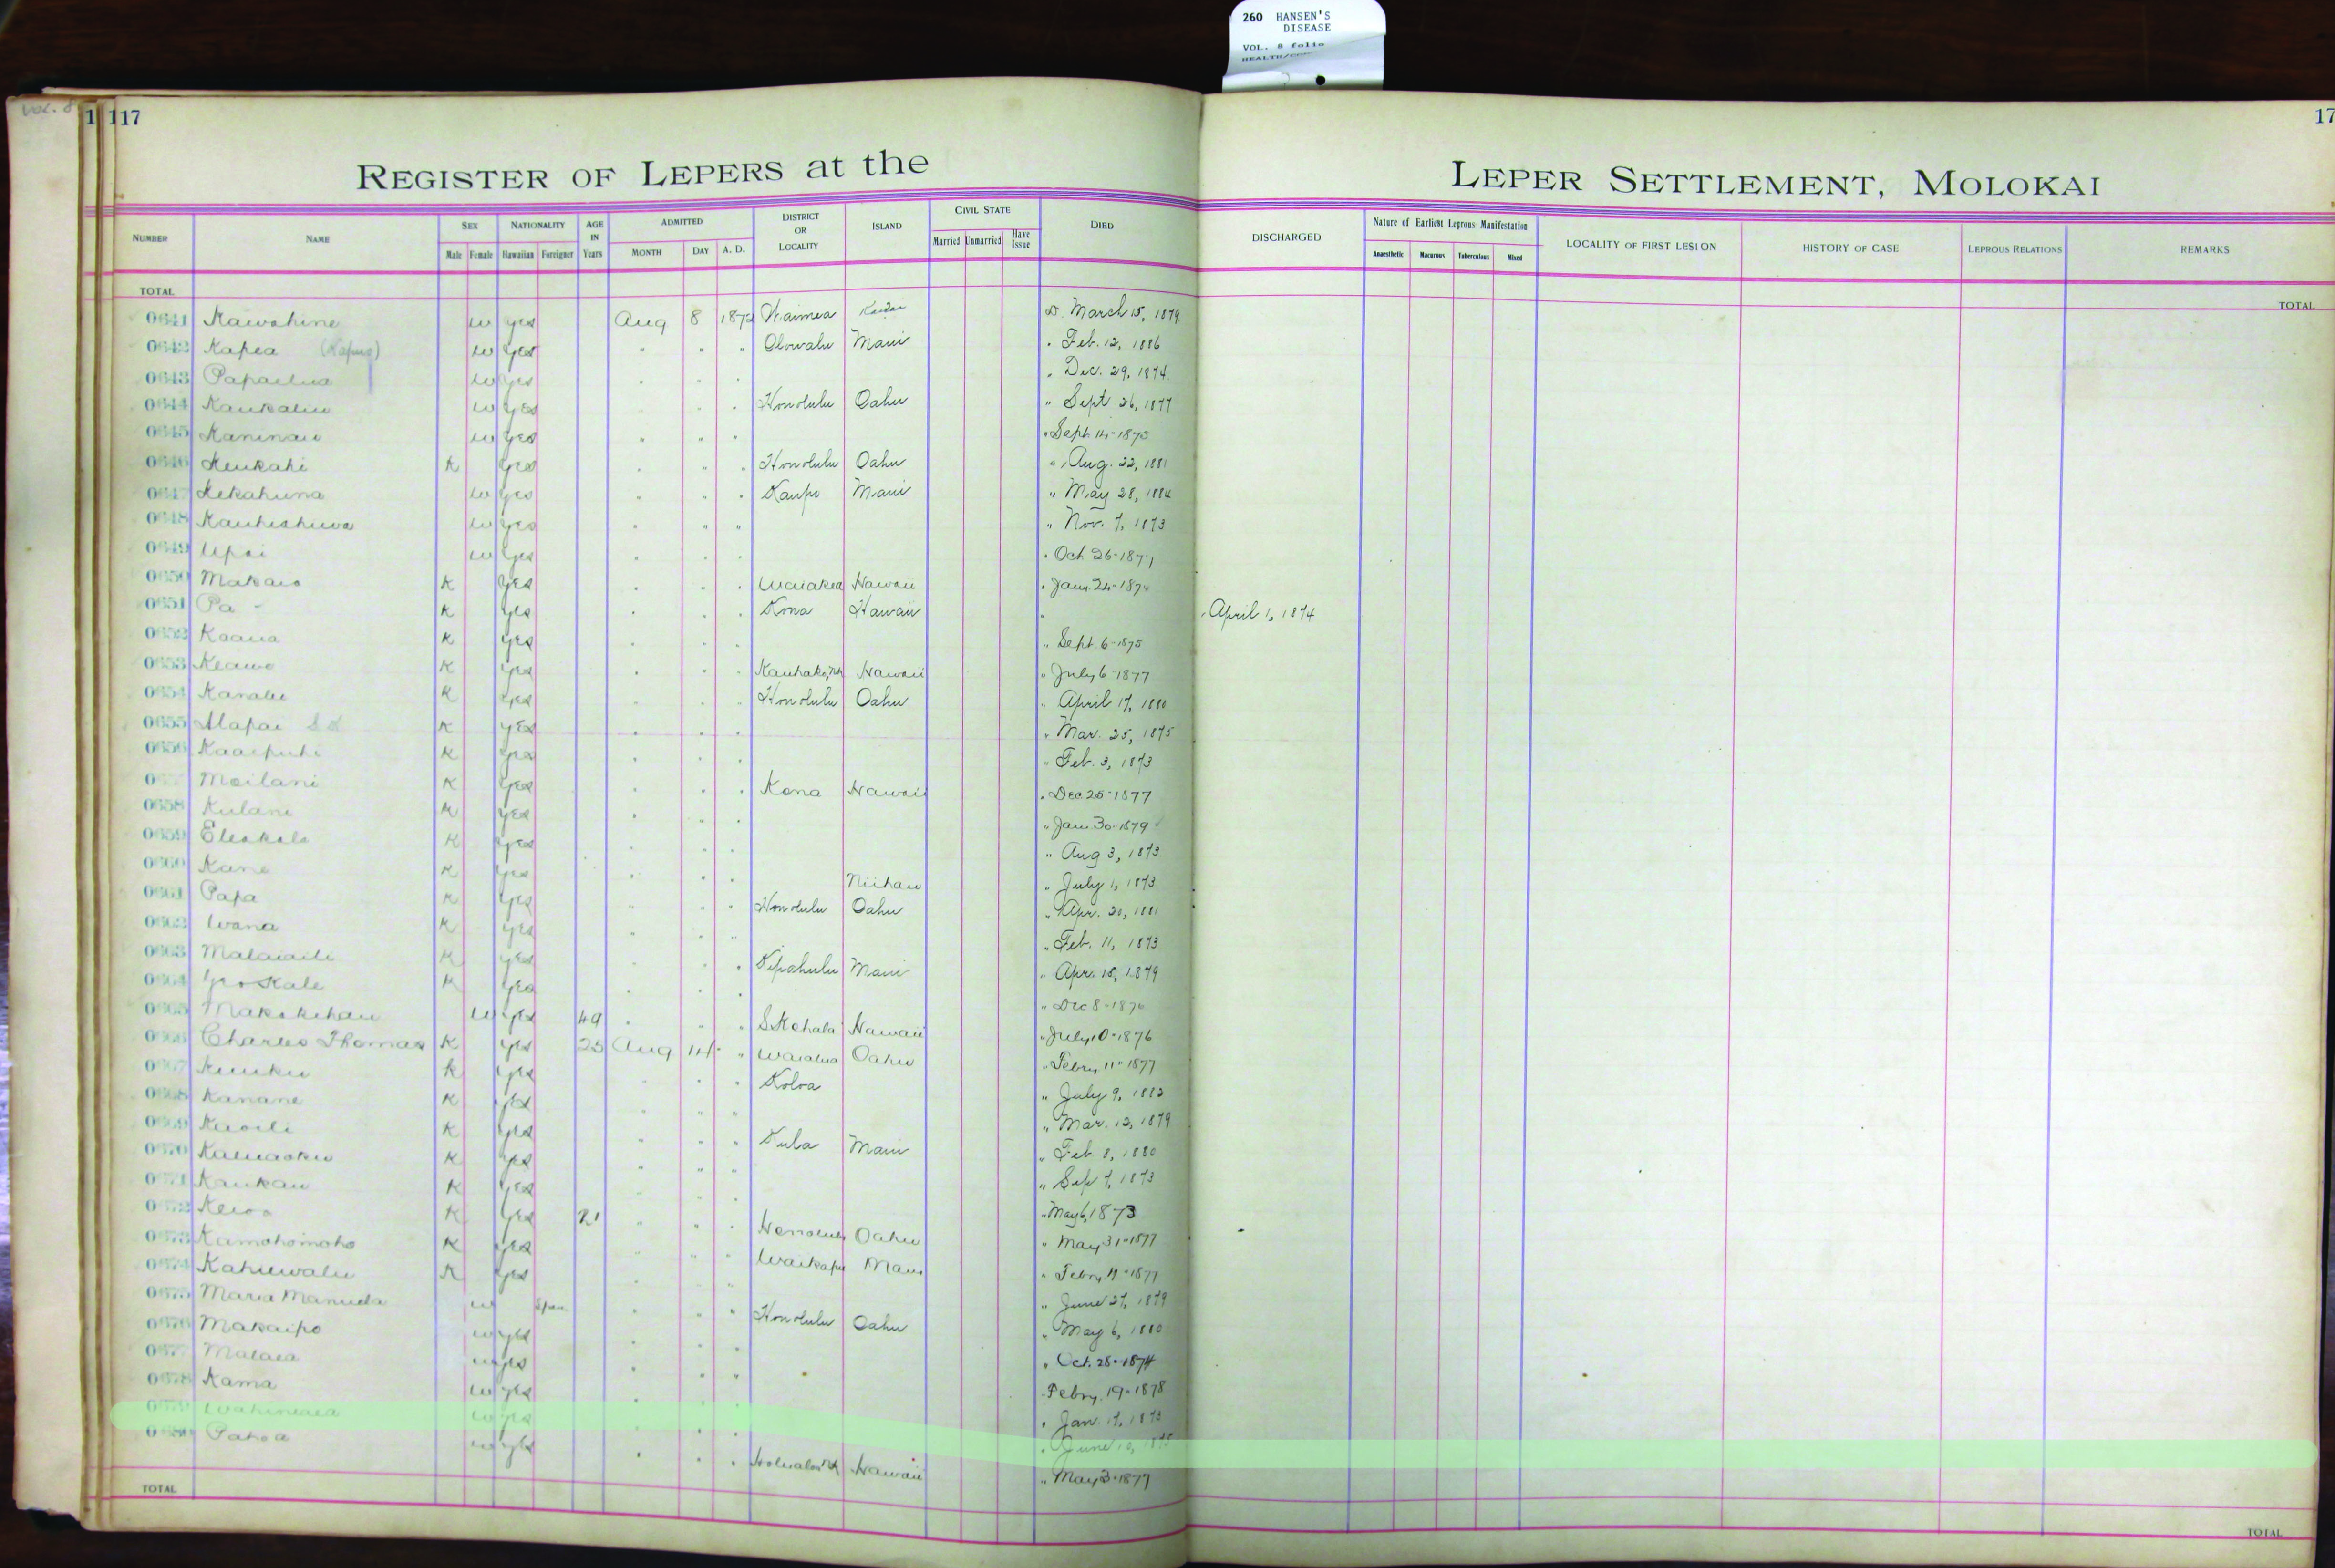 260 HANSEN'S
DISEASE
VOL. 8 folio
VOL. 8
1 117
17
REGISTER OF LEPERS at the LEPER SETTLEMENT, MOLOKAI
NUMBER NAME SEX Male Female NATIONALITY Hawaiian Foreigner AGE IN Years ADMITTED MONTH DAY A. D. DISTRICT OR LOCALITY ISLAND CIVIL STATE Married Unmarried Have Issue DIED DISCHARGED Nature of Earliest Leprous Manifestation Anaesthetic Macurous Tuberculous Mixed LOCALITY OF FIRST LESION HISTORY OF CASE LEPROUS RELATIONS REMARKS
TOTAL TOTAL
0641 Kawahine w yes Aug 8 1872 Waimea Kauai D. March 15, 1879
0642 Kapea w yes " " " Olowalu Maui " Feb. 12, 1886
0643 w yes " " " " Dec. 29, 1874
0644 w yes " " " Honolulu Oahu " Sept 26, 1877
0645 Kaninau w yes " " " " Sept 14-1875
0646 Keukahi K yes " " " Honolulu Oahu " Aug. 22, 1881
0647 Kekahuna w yes " " " Kaupo Maui " May 28, 1884
0648 w yes " " " " Nov. 7, 1873
0649 Upai w yes " " " " Oct 26-1871
0650 K yes " " " Waiakea Hawaii " Jany 24-1874
0651 Pa - K yes " " " Kona Hawaii " " April 1, 1874
0652 Koaua K yes " " " " Sept 6-1875
0653 Keawe K yes " " " Hawaii " July 6-1877
0654 Kanalu K yes " " " Honolulu Oahu " April 17, 1880
0655 Alapai K yes " " " " Mar. 25, 1875
0656 Kaaipuhi K yes " " " " Feb. 3, 1873
Moilani K yes " " " Kona Hawaii " Dec 25-1877
0658 Kulani K yes " " " " Jany 30-1879
0659 K yes " " " " Aug 3, 1873
0660 Kane K yes " " " Niihau " July 1, 1873
0661 Papa K yes " " " Honolulu Oahu " Apr. 20, 1881
0662 Wana K yes " " " " Feb. 11, 1873
0663 K yes " " " Kipahulu Maui " Apr. 15, 1879
0664 K yes " " " " Dec 8-1876
0665 Makakehau w yes 49 " " " S. Kohala Hawaii " July 10-1876
0666 Charles Thomas K yes 25 Aug 14 " Waialua Oahu " Febry 11-1877
0667 K yes " " " Koloa " July 9, 1882
0668 Kanane K yes " " " " Mar. 12, 1879
0669 K yes " " " Kula Maui " Feb 8, 1880
0670 K yes " " " " Sep 7, 1873
0671 Kaukau K yes " " " " May 6, 1873
0672 K yes 21 " " " Honolulu Oahu " May 31-1877
0673 Kamohomoho K yes " " " Waikapu Maui " Febry 11-1877
0674 Kahiewalu K yes " " " " June 27, 1879
0675 Maria Manuela w Span. " " " Honolulu Oahu " May 6, 1880
0676 Makaipo w yes " " " " Oct. 28-1874
0677 Malaea w yes " " " " Febry. 19-1878
0678 Kama w yes " " " " Jan. 17, 1873
w yes " " " " June 10, 1875
Pahoa w yes " " " Hawaii " May 3-1877
TOTAL TOTAL